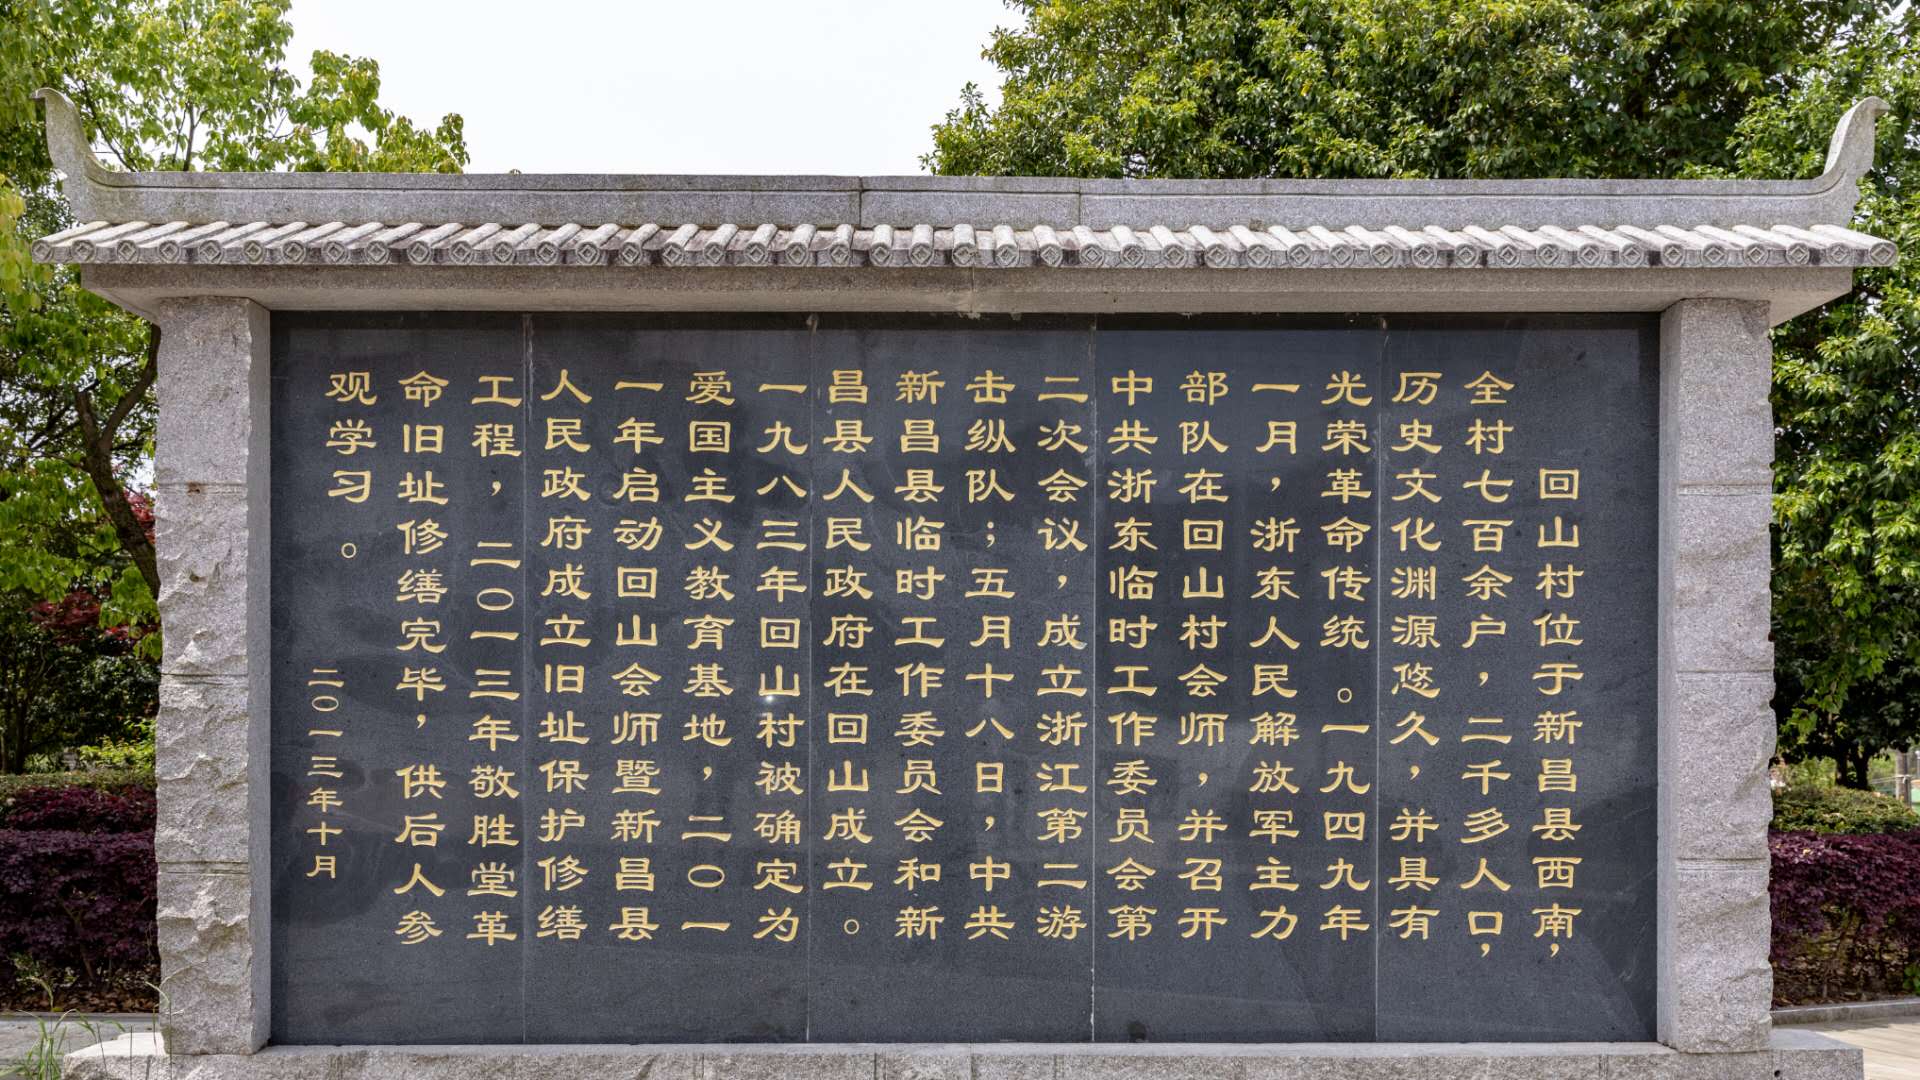 回山村位于新昌县西南，
全村七百余户，二千多人口，
历史文化渊源悠久，并具有
光荣革命传统。一九四九年
一月，浙东人民解放军主力
部队在回山村会师，并召开
中共浙东临时工作委员会第
二次会议，成立浙江第二游
击纵队；五月十八日，中共
新昌县临时工作委员会和新
昌县人民政府在回山成立。
一九八三年回山村被确定为
爱国主义教育基地，二〇一
一年启动回山会师暨新昌县
人民政府成立旧址保护修缮
工程，二〇一三年敬胜堂革
命旧址修缮完毕，供后人参
观学习。
二〇一三年十月